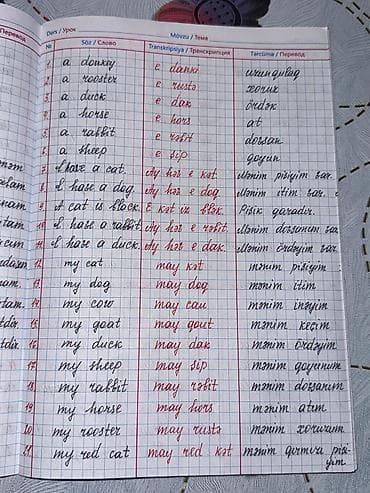 Перевод
Dərs / Урок Mövzu / Тема
№ Söz / Слово Transkripsiya / Транскрипция Tərcümə / Перевод
1. a donkey e danki
2. a rooster e rustə xoruz
3. a duck e dak ördək
4. a horse e hors at
5. a rabbit e rəbit dovşan
6. a sheep e şip qoyun
7. I have a cat. Ay həv e kət. Mənim pişiyim var.
8. I have a dog. Ay həv e dog. Mənim itim var.
9. A cat is black. E kət iz blək. Pişik qaradır.
10. I have a rabbit. Ay həv e rəbit. Mənim dovşanım var.
11. I have a duck. Ay həv e dak. Mənim ördəyim var.
12. my cat may kət mənim pişiyim
13. my dog may dog mənim itim
14. my cow may cau mənim inəyim
15. my goat may gout mənim keçim
16. my duck may dak mənim ördəyim
17. my sheep may şip mənim qoyunum
18. my rabbit may rəbit mənim dovşanım
19. my horse may hors mənim atım
20. my rooster may rustə mənim xoruzum
21. my red cat may red kət mənim qırmızı pişi-
yim